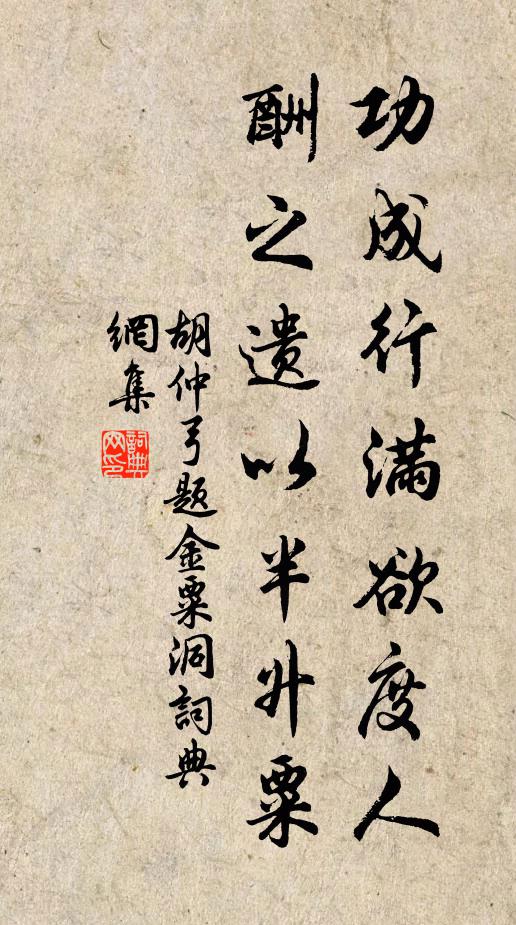 功成行满欲度人
酬之遗以半升粟
胡仲弓题金粟洞詞典
網集
詞典
网印